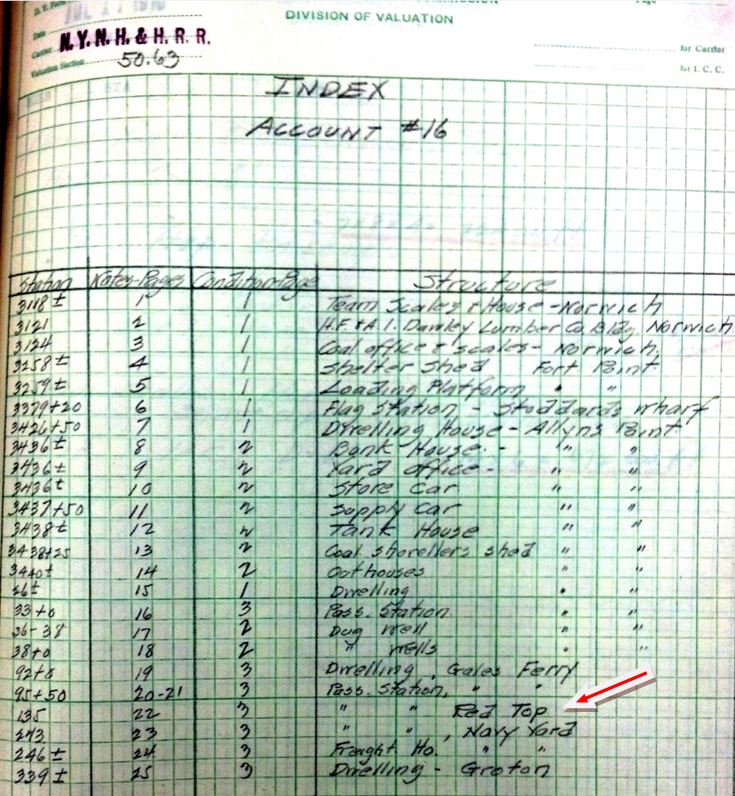 DIVISION OF VALUATION
N. Y. N. H. & H. R. R.
Valuation Section 50.63
for Carrier
for I. C. C.
INDEX
ACCOUNT #16
Station Notes-Pages Condition-Page Structure
3118± 1 1 Team Scales & House - Norwich
3121 2 1 H.F. & A.I. Dawley Lumber Co Bldg. Norwich
3124 3 1 Coal office & scales - Norwich.
3258± 4 1 Shelter Shed Fort Point
3259± 5 1 Loading Platform " "
3379+20 6 1 Flag Station - Stoddards Wharf
3426+50 7 1 Dwelling House - Allyns Point
3436± 8 2 Bank House. - " "
3436± 9 2 Yard office - " "
3436± 10 2 Store Car " "
3437+50 11 2 Supply Car " "
3438± 12 2 Tank House " "
3438+25 13 2 Coal shovellers shed " "
3440± 14 2 Outhouses " "
26± 15 1 Dwelling " "
33+0 16 3 Pass. Station " "
36-38 17 2 Dug Well " "
38+0 18 2 " Wells " "
92+0 19 3 Dwelling, Gales Ferry
95+50 20-21 3 Pass. Station, " "
135 22 3 " " Red Top
243 23 3 " " , Navy Yard
246± 24 3 Freight Ho. " "
339± 25 3 Dwelling - Groton